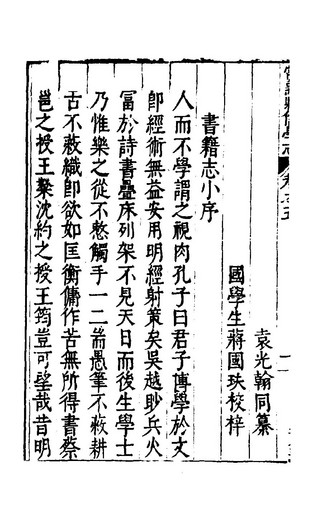 常熟縣儒學志 卷之五
袁光翰同纂
國學生蔣國玞校梓
書籍志小序
人而不學謂之視肉孔子曰君子博學於文
卽經術無益安用明經射策矣吳越眇兵火
冨於詩書疊床列架不見天日而後生學士
乃惟樂之從不慭觸手一二耑愚筆不蔱耕
古不蔱織卽欲如匡衡傭作苦無所得書蔡
邕之授王粲沈約之授王筠豈可望哉昔明